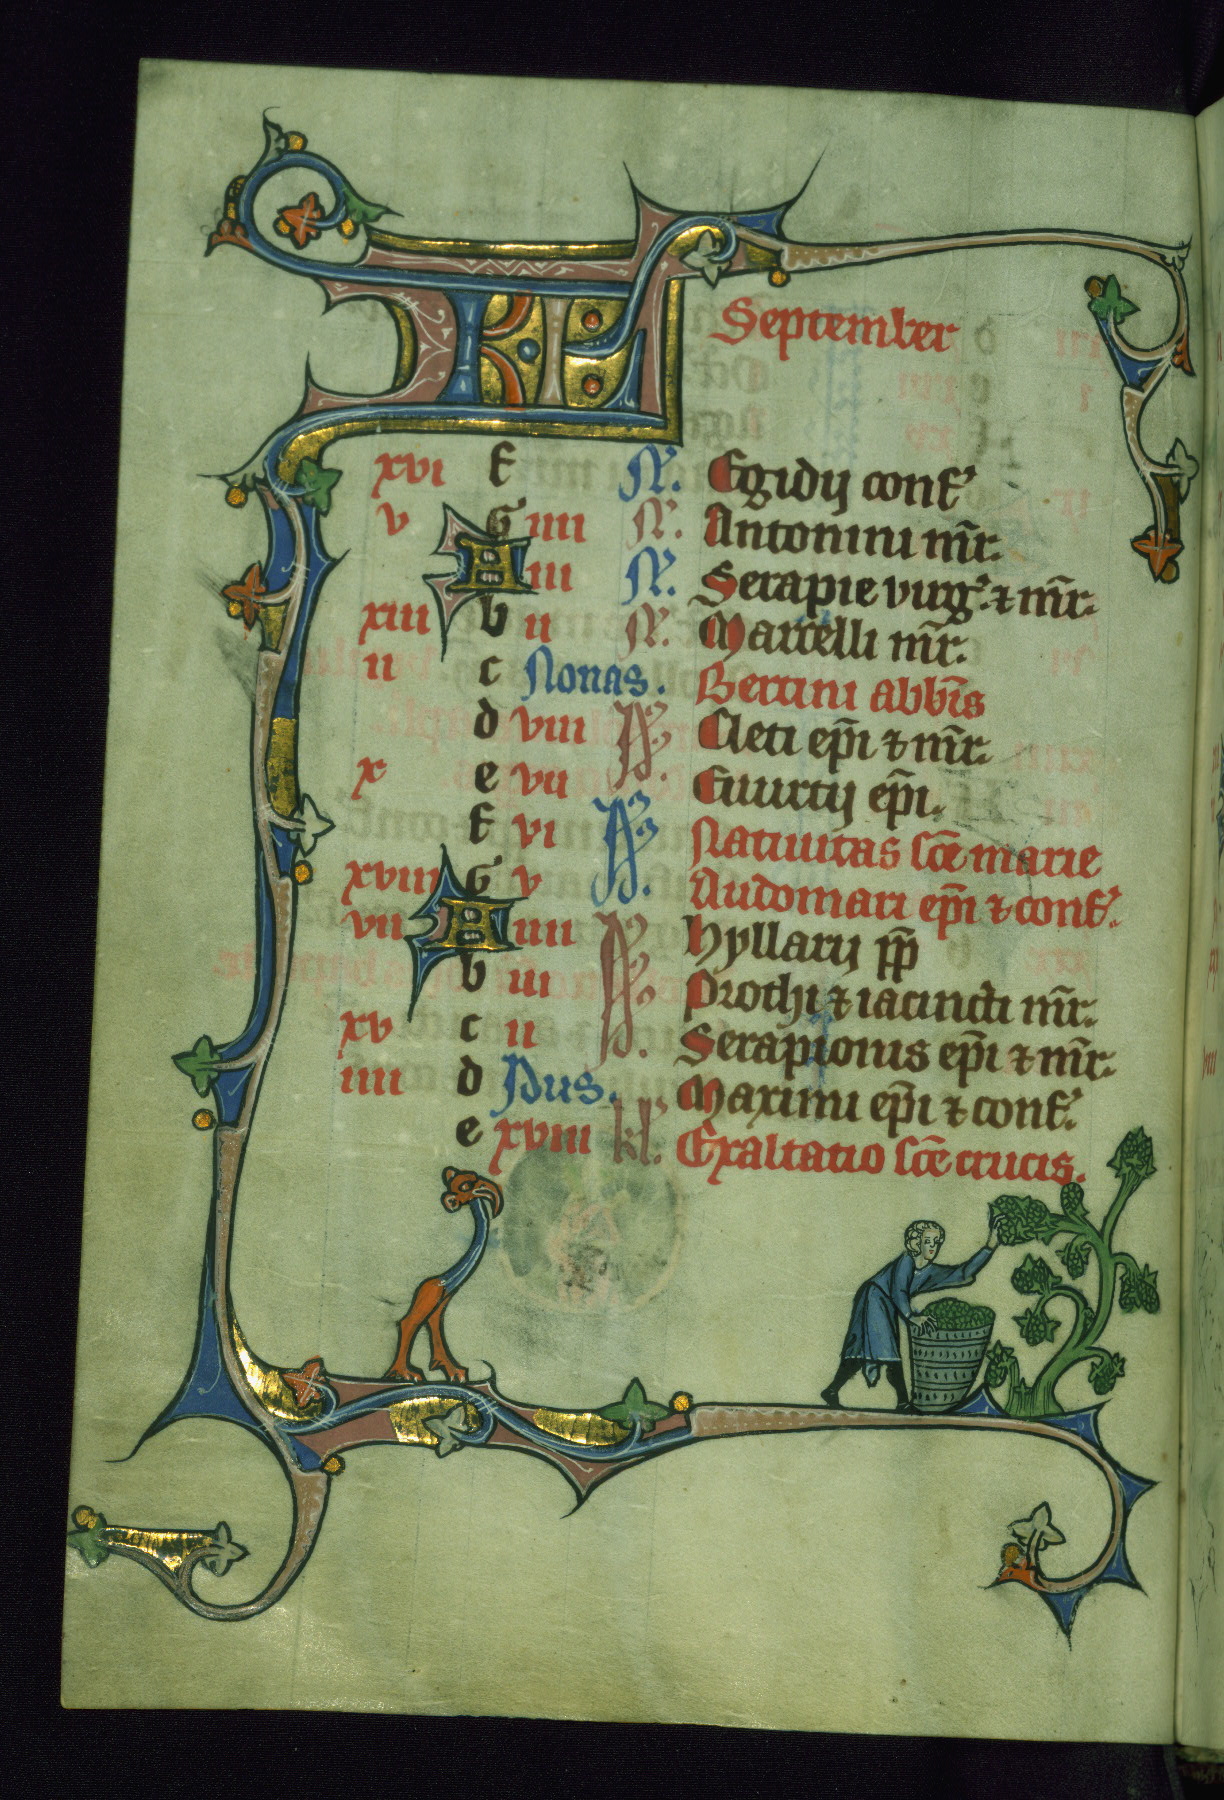 KL September
xvi f N. Egidij conf̃
v G iiii N. Antonini m̃r.
A iii N. Serapie virg̃. ⁊ m̃r.
xiii b ii N. Marcelli m̃r.
ii c Nonas. Bertini abb̃is
d viii Cleti ep̃i ⁊ m̃r.
x e vii Euurtij ep̃i.
f vi Natiuitas sc̃e marie
xviii G v Audomari ep̃i ⁊ conf̃.
vii A iiii hyllarij pp̃
b iii Prothi ⁊ iacincti m̃r.
xv c ii Serapionis ep̃i ⁊ m̃r.
iiii d Idus. Maximi ep̃i ⁊ conf̃.
e xviii kl. Exaltatio sc̃e crucis.